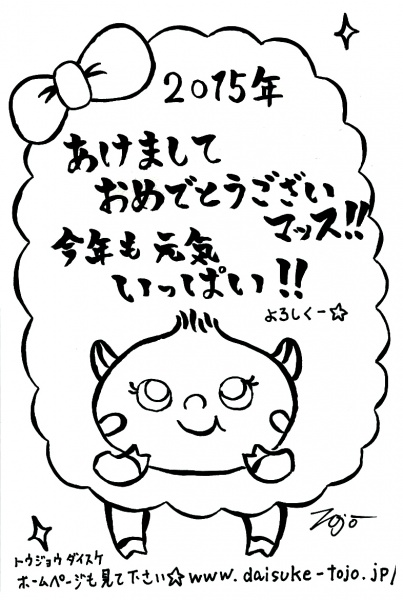 2015年
あけまして
おめでとうござい
マッス!!
今年も元気
いっぱい!!
よろしくー☆
Tojo
トウジョウ ダイスケ
ホームページも見て下さい☆www.daisuke-tojo.jp/